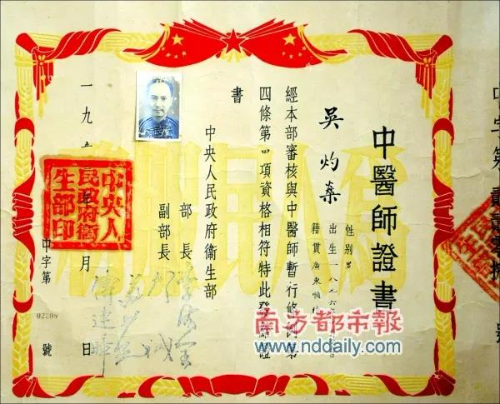 中醫師證書
吳灼燊
性别男
出生一八
籍貫廣東順
經本部審核與中醫師暫行條例第
四條第 項資格相符特此發給證
書
中央人民政府衛生部
部長 李德全
副部長
一九 年 月 日
中字第 號
中央人
民政府衛
生部印
南方都市報
www.nddaily.com